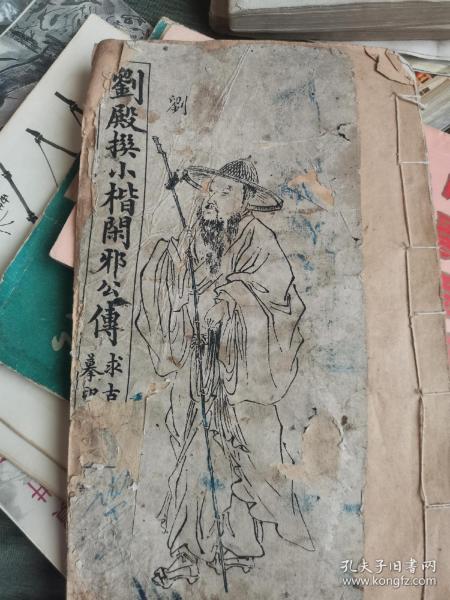 劉殿撰小楷閑邪公傳
求古
摹印
劉
孔夫子旧書网
www.kongfz.com